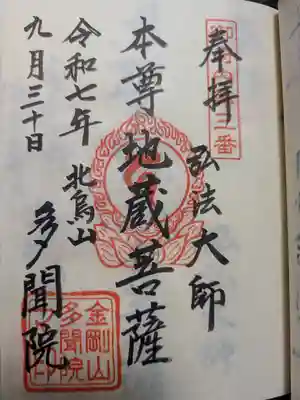 奉拝
弘法大師
本尊地蔵菩薩
北烏山
多聞院
令和七年
九月三十日
金剛山
多聞院